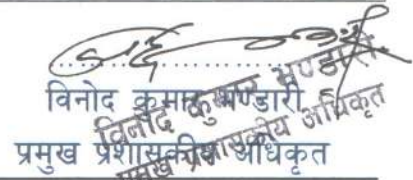 विनोद कुमार भण्डारी
प्रमुख प्रशासकीय अधिकृत
विनोद कुमार भण्डारी
प्रमुख प्रशासकीय अधिकृत